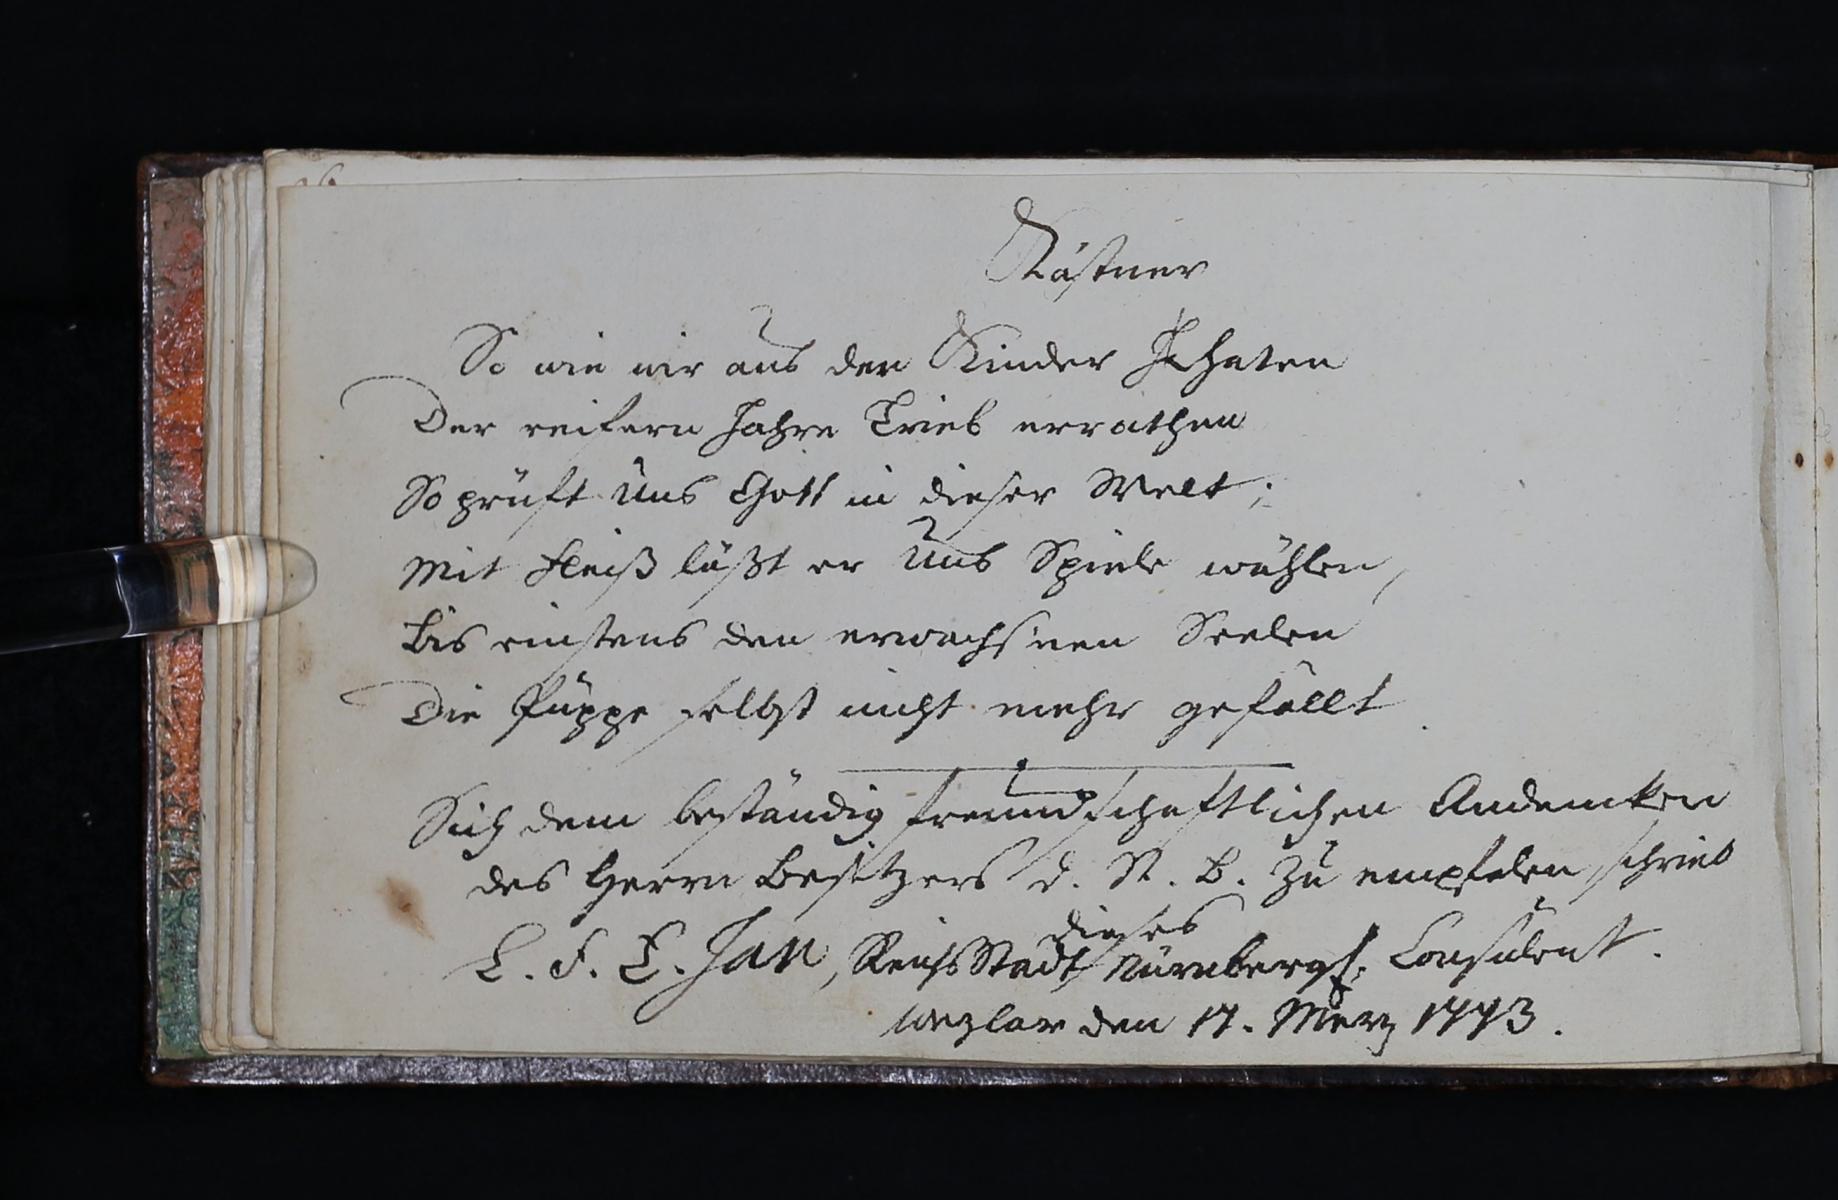 Kästner
So wie wir aus der Kinder Thaten
Der reifern Jahre Trieb errathen
So prüft uns Gott in dieser Welt;
Mit Fleiß läßt er uns Spiele wählen,
Bis einstens den erwachs'nen Seelen
Die Puppe selbst nicht mehr gefällt.
Sich dem beständig freundschaftlichen Andencken
des Herrn Besitzers d. St. B. zu empfelen, schrieb
dieses
L. F. E. Jan, Reichs Stadt Nürnbergs. Consulent.
Wezlar den 17. Merz 1773.